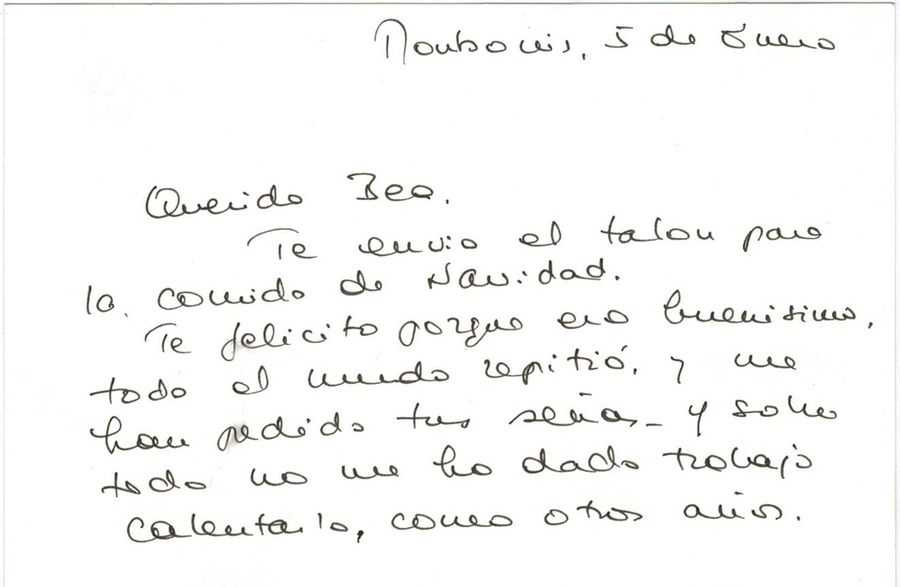 5 de Enero
Querida Bea.
Te envio el talon para
la comida de Navidad.
Te felicito porque era buenisimo,
todo el mundo repitió, y me
han pedido tus señas - y sobre
todo no me ha dado trabajo
calentarlo, como otros años.